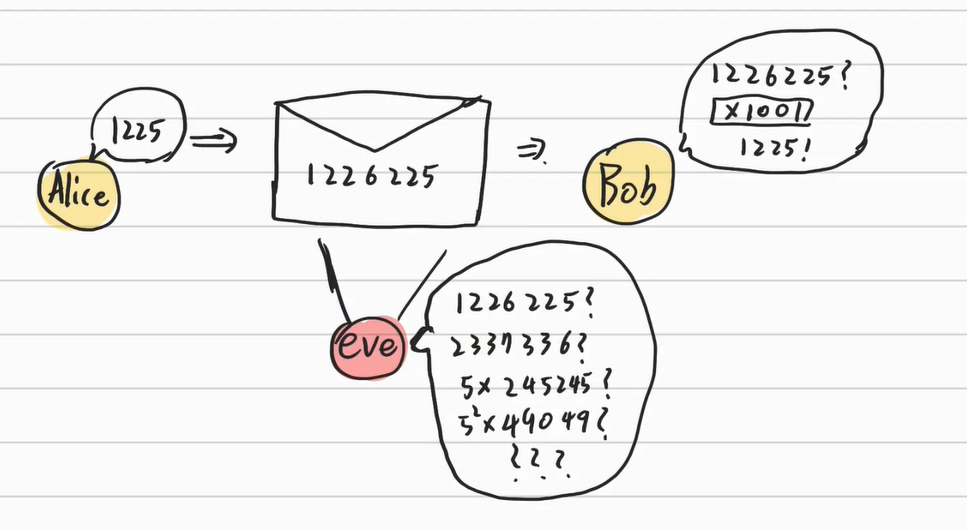 1225
Alice
1226225
Bob
1226225?
×1001
1225!
eve
1226225?
2337336?
5× 245245?
5²×49049?
???